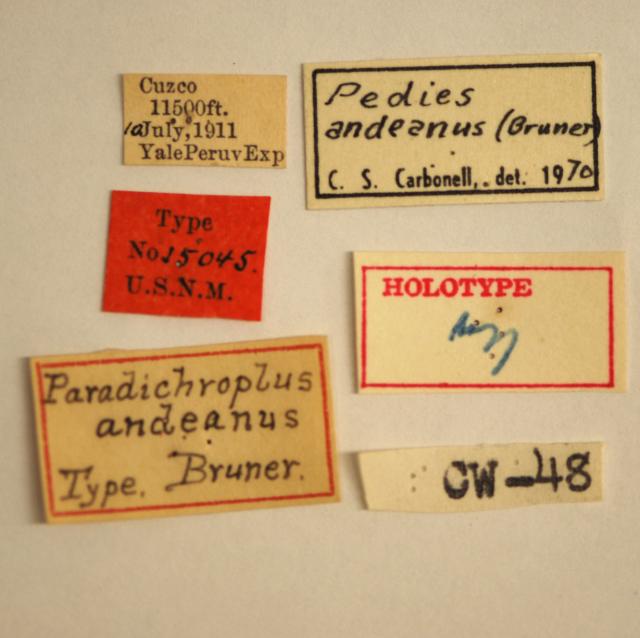 Cuzco
11500ft.
10July,1911
YalePeruvExp
Pedies
andeanus (Bruner)
C. S. Carbonell, det. 1970
Type
No 15045.
U.S.N.M.
HOLOTYPE
Paradichroplus
andeanus
Type. Bruner.
CW-48